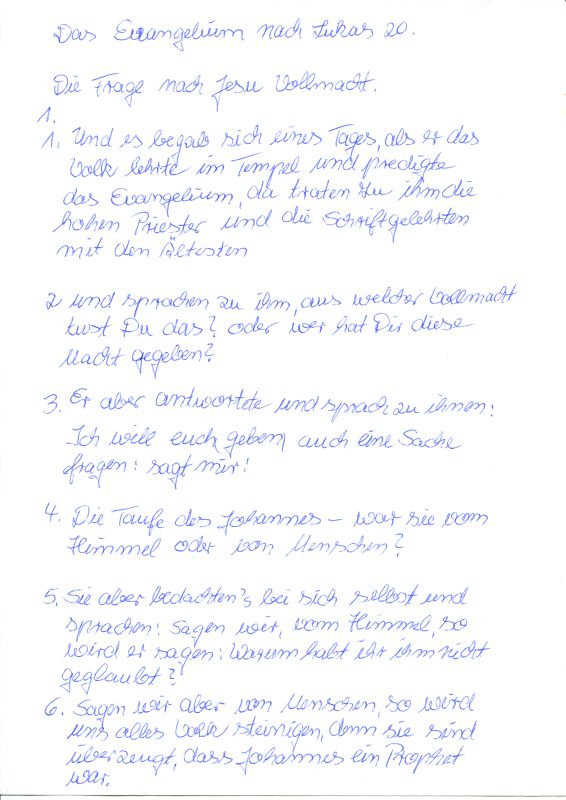 Das Evangelium nach Lukas 20.
Die Frage nach Jesu Vollmacht.
1.
1. Und es begab sich eines Tages, als er das
Volk lehrte im Tempel und predigte
das Evangelium, da traten zu ihm die
hohen Priester und die Schriftgelehrten
mit den Ältesten
2 und sprachen zu ihm, aus welcher Vollmacht
tust Du das? oder wer hat Dir diese
Macht gegeben?
3. Er aber antwortete und sprach zu ihnen:
Ich will euch geben auch eine Sache
fragen: sagt mir!
4. Die Taufe des Johannes – war sie vom
Himmel oder von Menschen?
5. Sie aber bedachten's bei sich selbst und
sprachen: Sagen wir, vom Himmel, so
wird er sagen: Warum habt ihr ihm nicht
geglaubt?
6. Sagen wir aber von Menschen, so wird
uns alles Volk steinigen, denn sie sind
überzeugt, dass Johannes ein Prophet
war.